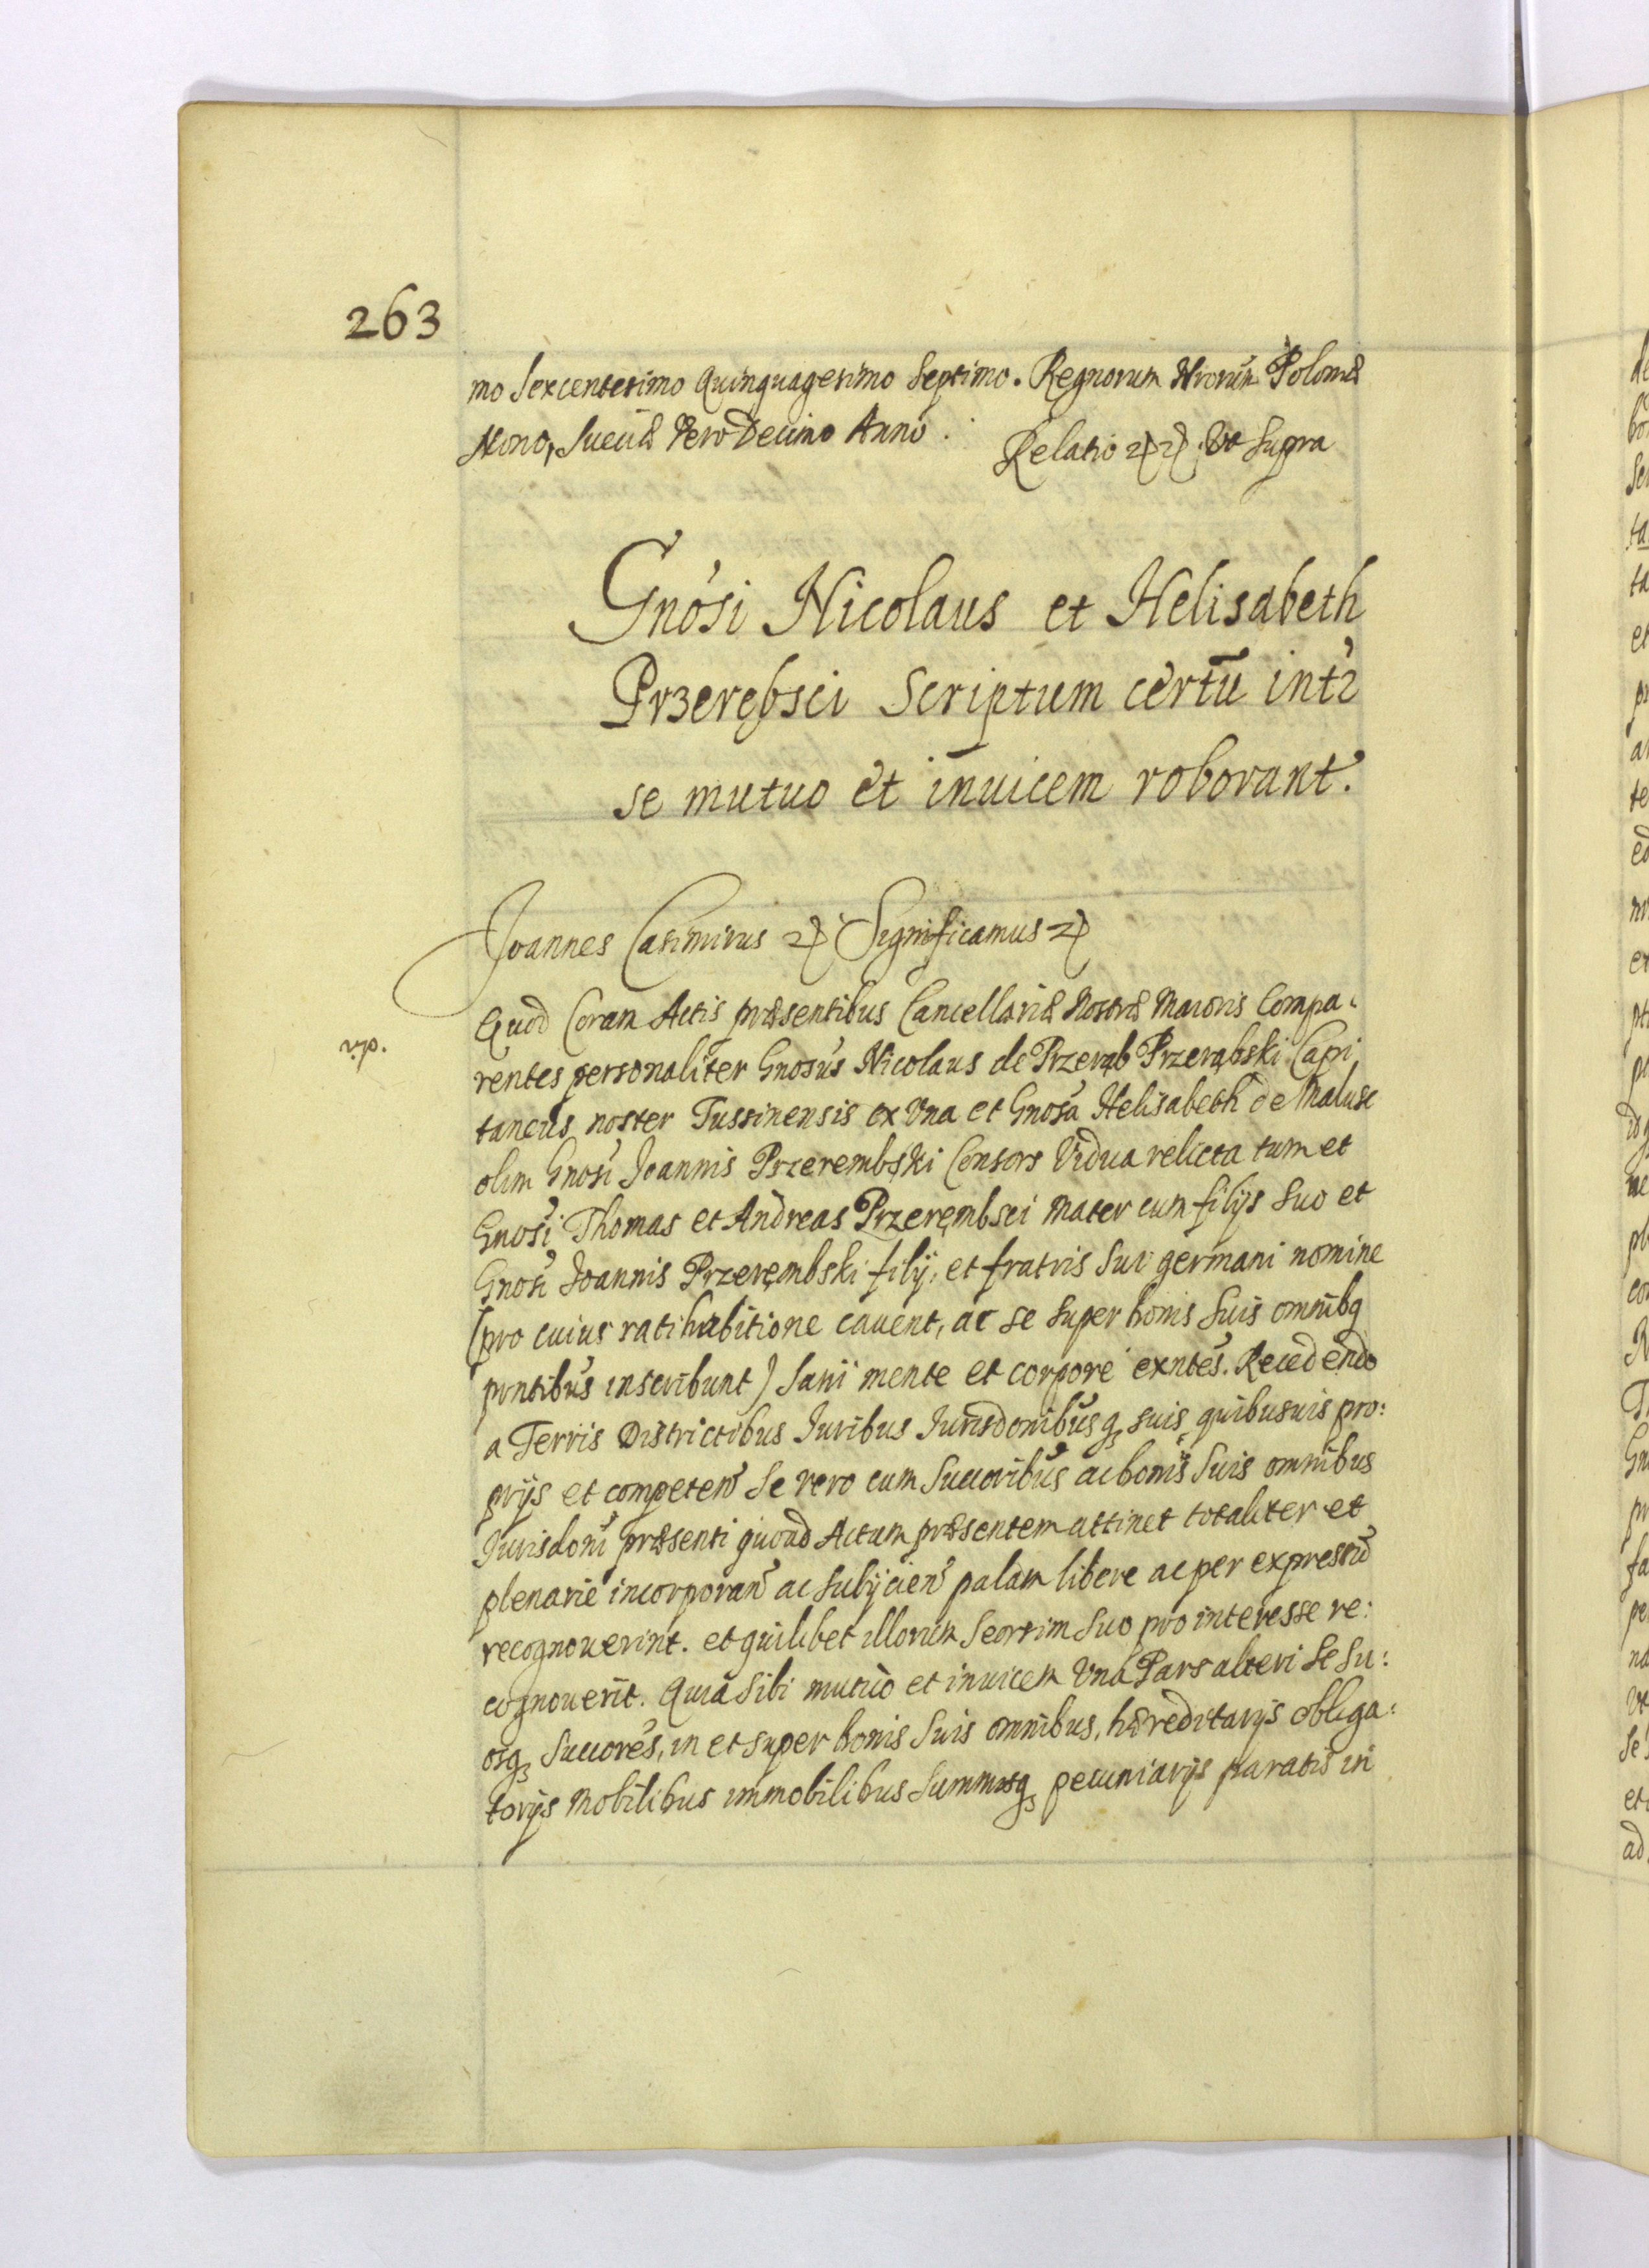 263
mo Sexcentesimo Quinquagesimo Septimo. Regnorum Nrorum Poloniæ
Nono, Sueciæ Vero Decimo Anno.
Relatio etc etc. Ut Supra
Gnosi Nicolaus et Helisabeth
Przerębsci Scriptum certũ inter
se mutuo et inuicem roborant.
Joannes Casimirus etc Significamus etc
Quod Coram Actis præsentibus Cancellariæ Nostræ Maioris Compa:
rentes personaliter Gnosus Nicolaus de Przerąb Przerąbski Capi
taneus noster Tussinensis ex Vna et Gnosa Helisabeth de Malusz
olim Gnosi Joannis Przerembski Consors Vidua relicta tum et
Gnosi Thomas et Andreas Przeręmbsci Mater cum filijs Suo et
Gnosi Joannis Przeręmbski filij, et fratris Sui germani nomine
(pro cuius ratihabitione cauent, ac se super bonis Suis omnibq
pntibus inscribunt) Sani mente et corpore exntes. Recedendo
a Terris Districtibus Juribus Jurisdonibusq suis, quibusuis pro:
prijs et competen Se vero cum Succoribus ac bonis Suis omnibus
Jurisdoni præsenti quoad Actum præsentem attinet totaliter et
plenarie incorporan ac Subijcien palam libere ac per expressũ
recognouerint. et quilibet illorum Seorsim Suo pro interesse re:
cognouerit. Quia Sibi mutuo et inuicem Vna Pars alteri Se Su:
osq Succores, in et super bonis Suis omnibus, hæreditarijs obliga:
torijs Mobilibus immobilibus Summisq pecuniarijs paratis in